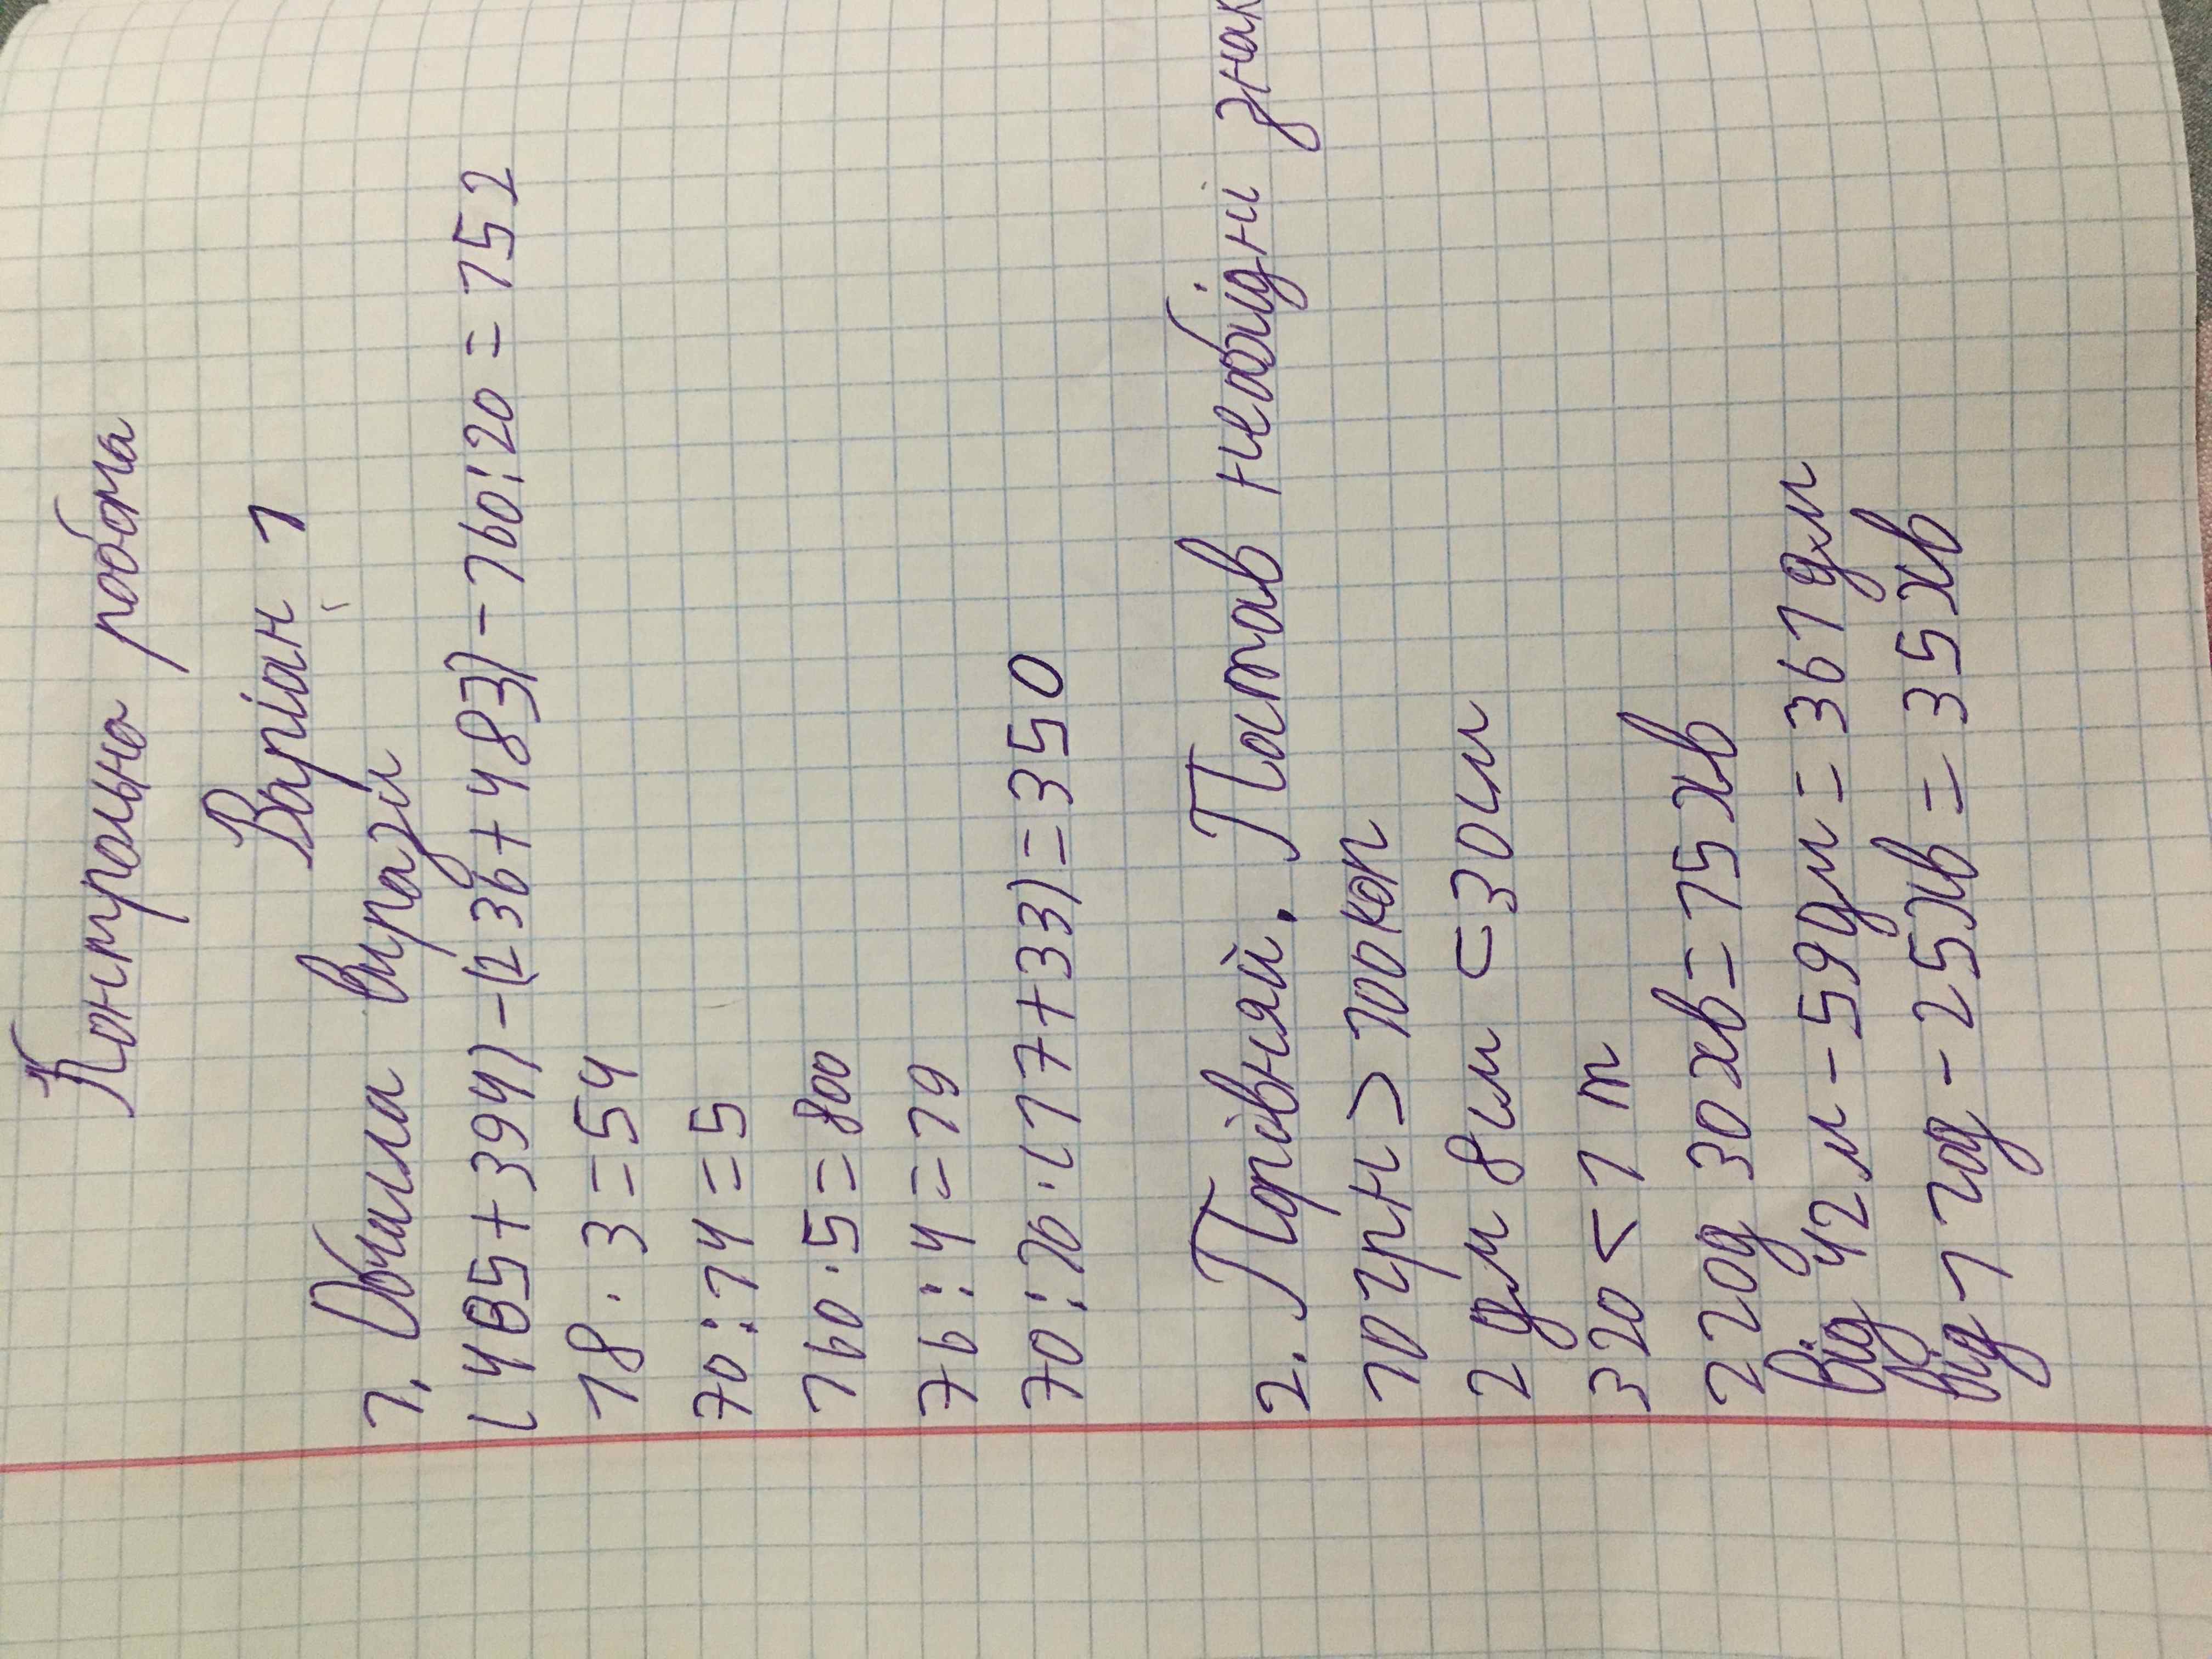 Контрольна робота
Варіан 1
1. Обчисли вирази
(485+394)-(236+483)-160:20=152
18·3=54
70:14=5
160·5=800
76:4=19
70:70·(17+33)=350
2. Порівняй. Постав необідні знак
10 грн > 100 коп
2 дм 8 см < 30 см
320 < 1 т
2 год 30 хв = 15 хв
Від 42 м - 59 дм = 361 дм
від 1 год - 25 хв = 35 хв